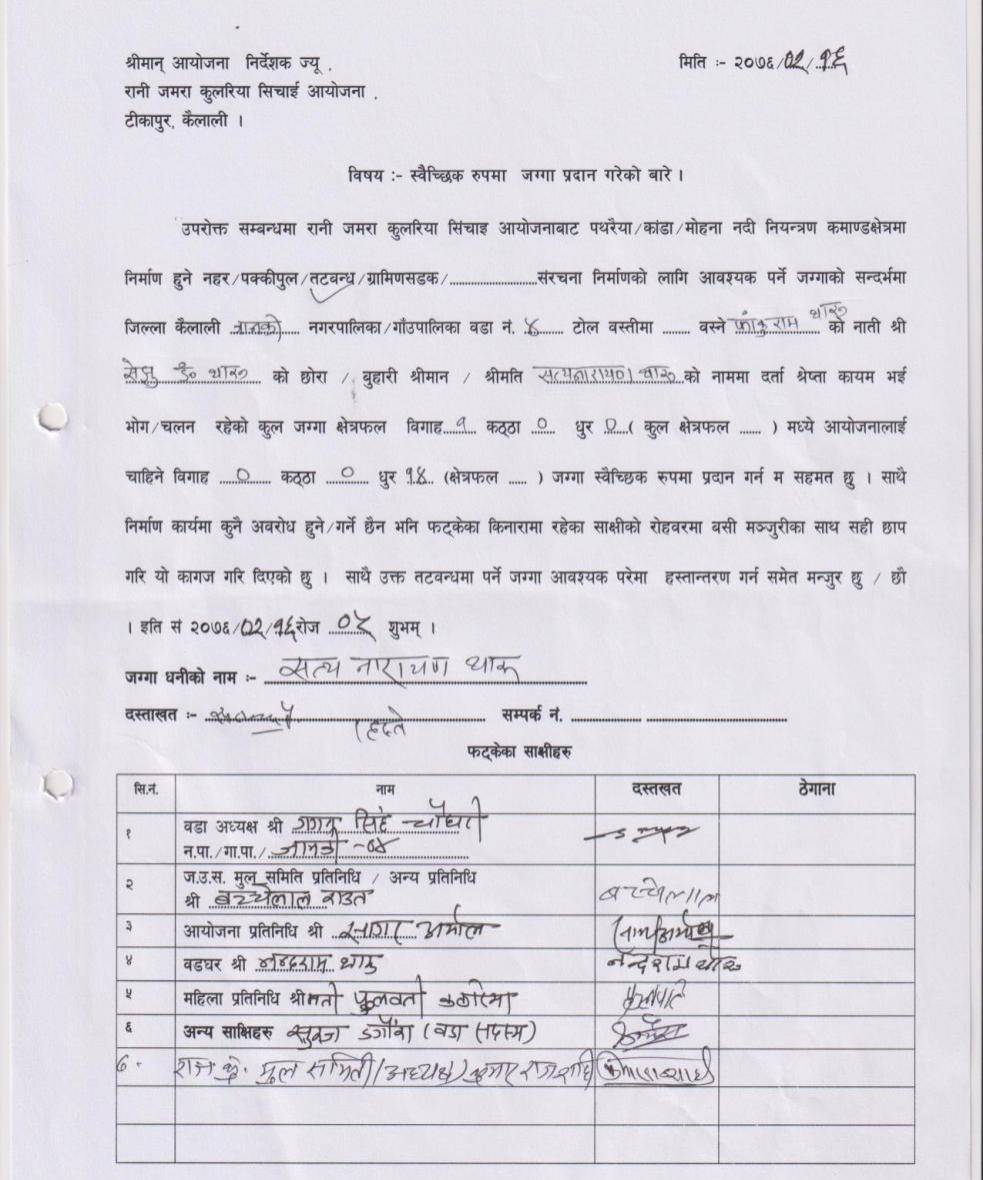 श्रीमान् आयोजना निर्देशक ज्यू .
मिति :- २०७६/02/१६
रानी जमरा कुलरिया सिचाई आयोजना .
टीकापुर, कैलाली ।
विषय :- स्वैच्छिक रुपमा जग्गा प्रदान गरेको बारे ।
उपरोक्त सम्बन्धमा रानी जमरा कुलरिया सिंचाइ आयोजनाबाट पथरैया/कांडा/मोहना नदी नियन्त्रण कमाण्डक्षेत्रमा
निर्माण हुने नहर/पक्कीपुल/तटबन्ध/ग्रामिणसडक/....................संरचना निर्माणको लागि आवश्यक पर्ने जग्गाको सन्दर्भमा
जिल्ला कैलाली जानकी नगरपालिका/गाँउपालिका वडा नं. ४ टोल वस्तीमा ....... वस्ने राम थारु को नाती श्री
थारु को छोरा / बुहारी श्रीमान / श्रीमति सत्यनारायण थारु को नाममा दर्ता श्रेष्ता कायम भई
भोग/चलन रहेको कुल जग्गा क्षेत्रफल विगाह १ कठ्ठा ० धुर ० ( कुल क्षेत्रफल ...... ) मध्ये आयोजनालाई
चाहिने विगाह ० कठ्ठा ० धुर १४ (क्षेत्रफल ..... ) जग्गा स्वैच्छिक रुपमा प्रदान गर्न म सहमत छु । साथै
निर्माण कार्यमा कुनै अवरोध हुने/गर्ने छैन भनि फट्केका किनारामा रहेका साक्षीको रोहवरमा वसी मञ्जुरीका साथ सही छाप
गरि यो कागज गरि दिएको छु । साथै उक्त तटवन्धमा पर्ने जग्गा आवश्यक परेमा हस्तान्तरण गर्न समेत मन्जुर छु / छौ
। इति सं २०७६/02/१६ रोज ०५ शुभम् ।
जग्गा धनीको नाम :- सत्य नारायण थारु
दस्ताखत :- सम्पर्क नं. .................. ....................................
फट्केका साक्षीहरु
सि.नं. नाम दस्तखत ठेगाना
१ वडा अध्यक्ष श्री सिंह चौधरी
न.पा./गा.पा./ जानकी -०४
२ ज.उ.स. मुल समिति प्रतिनिधि / अन्य प्रतिनिधि
श्री बच्चेलाल राउत बच्चेलाल
३ आयोजना प्रतिनिधि श्री सागर अर्माल
४ वडघर श्री नन्दराम थारु नन्दराम थारु
५ महिला प्रतिनिधि श्रीमती फुलवती कठरिया फुलवति
६ अन्य साक्षिहरु डगौरा (वडा सदस्य)
७. राज कु. मुल समिती (अध्यक्ष)